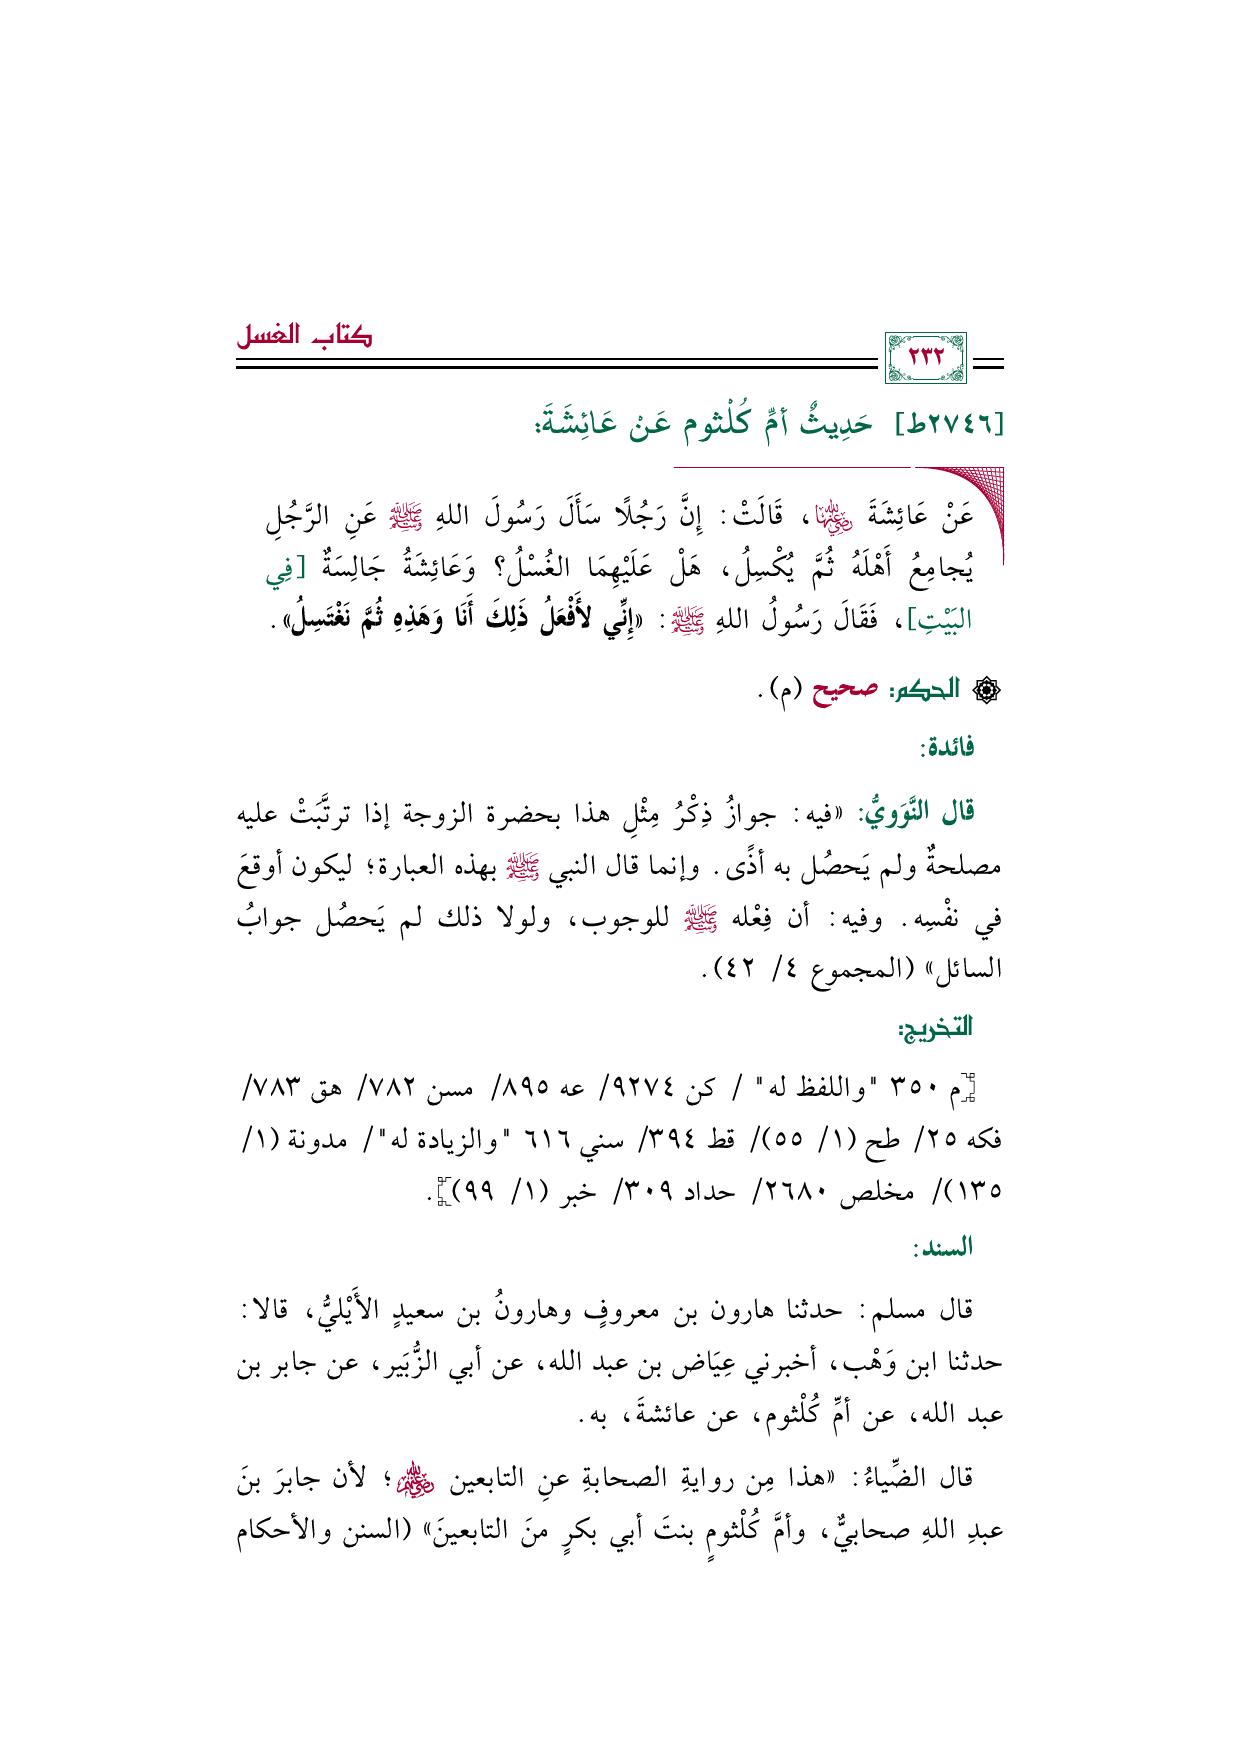 كتاب الغسل
٢٣٢
[٢٧٤٦ط] حَدِيثُ أمِّ كُلْثوم عَنْ عَائِشَةَ:
عَنْ عَائِشَةَ رضي الله عنها، قَالَتْ: إِنَّ رَجُلًا سَأَلَ رَسُولَ اللهِ ﷺ عَنِ الرَّجُلِ
يُجامِعُ أَهْلَهُ ثُمَّ يُكْسِلُ، هَلْ عَلَيْهِمَا الغُسْلُ؟ وَعَائِشَةُ جَالِسَةٌ [فِي
البَيْتِ]، فَقَالَ رَسُولُ اللهِ ﷺ: «إِنِّي لأَفْعَلُ ذَلِكَ أَنَا وَهَذِهِ ثُمَّ نَغْتَسِلُ».
الحكم: صحيح (م).
فائدة:
قال النَّوَويُّ: «فيه: جوازُ ذِكْرُ مِثْلِ هذا بحضرة الزوجة إذا ترتَّبَتْ عليه
مصلحةٌ ولم يَحصُل به أذًى. وإنما قال النبي ﷺ بهذه العبارة؛ ليكون أوقعَ
في نفْسِه. وفيه: أن فِعْله ﷺ للوجوب، ولولا ذلك لم يَحصُل جوابُ
السائل» (المجموع ٤/ ٤٢).
التخريج:
[م ٣٥٠ "واللفظ له" / كن ٩٢٧٤/ عه ٨٩٥/ مسن ٧٨٢/ هق ٧٨٣/
فكه ٢٥/ طح (١/ ٥٥)/ قط ٣٩٤/ سني ٦١٦ "والزيادة له"/ مدونة (١/
١٣٥)/ مخلص ٢٦٨٠/ حداد ٣٠٩/ خبر (١/ ٩٩)].
السند:
قال مسلم: حدثنا هارون بن معروفٍ وهارونُ بن سعيدٍ الأَيْليُّ، قالا:
حدثنا ابن وَهْب، أخبرني عِيَاض بن عبد الله، عن أبي الزُّبَير، عن جابر بن
عبد الله، عن أمِّ كُلْثوم، عن عائشةَ، به.
قال الضِّياءُ: «هذا مِن روايةِ الصحابةِ عنِ التابعين رضي الله عنهم؛ لأن جابرَ بنَ
عبدِ اللهِ صحابيٌّ، وأمَّ كُلْثومٍ بنتَ أبي بكرٍ منَ التابعينَ» (السنن والأحكام